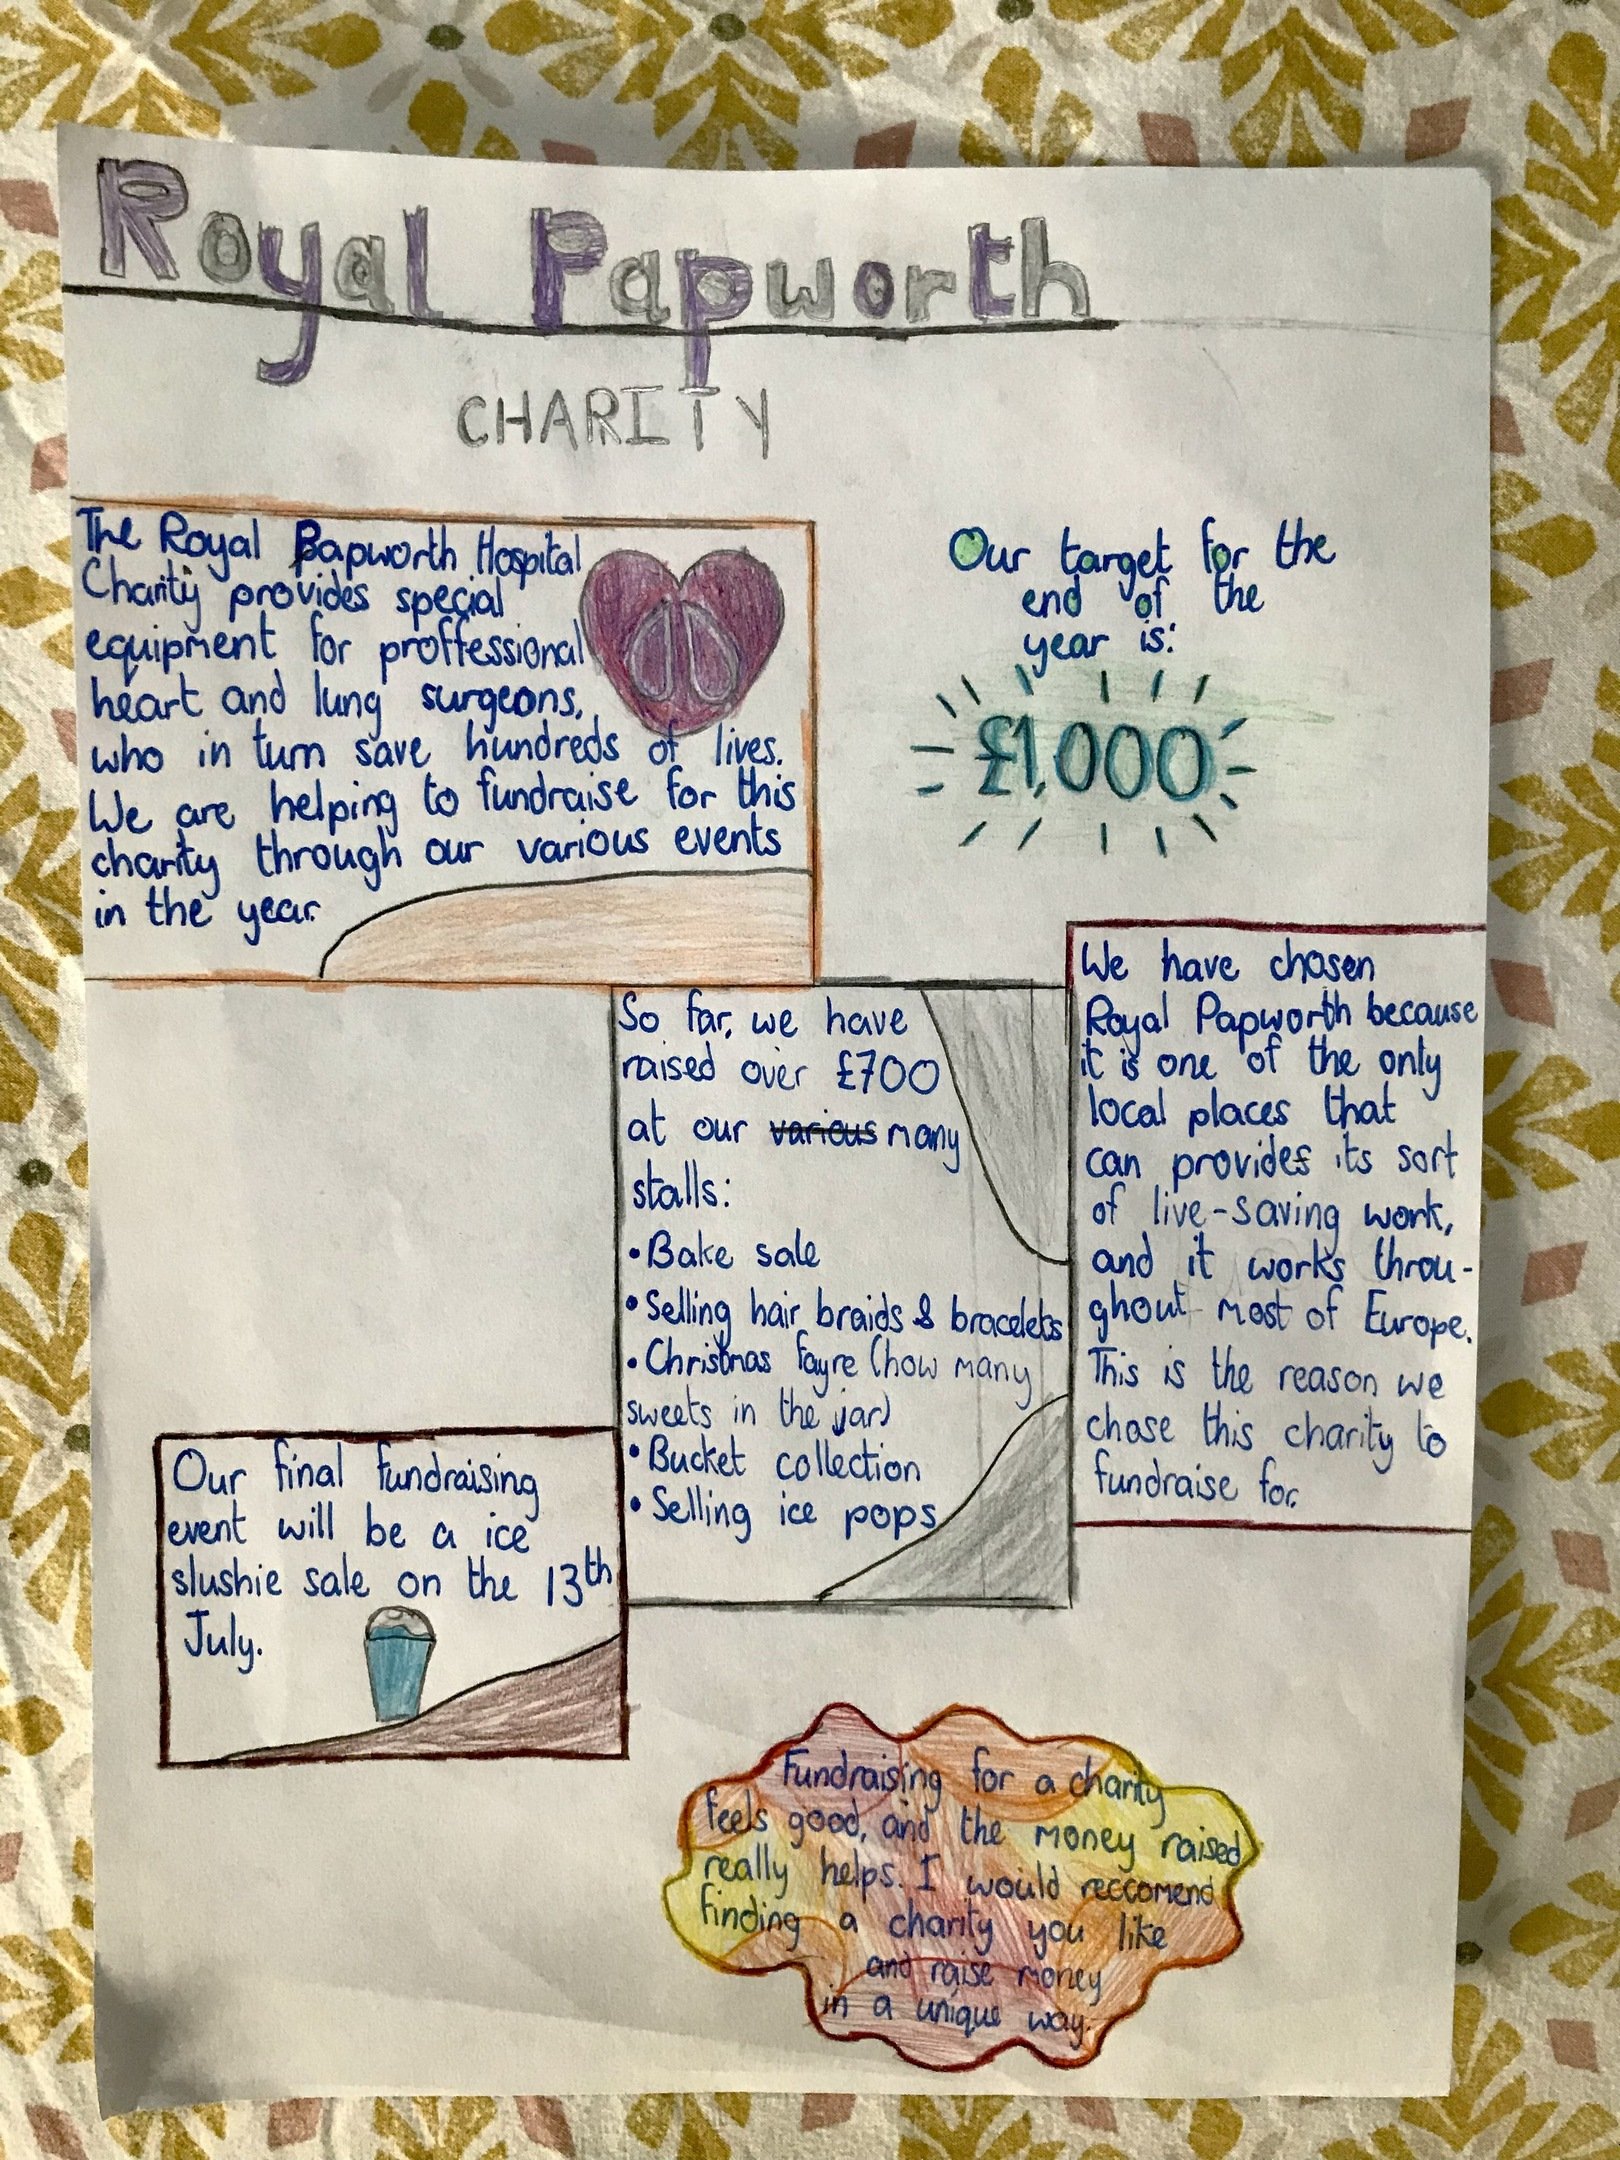 Royal Papworth
CHARITY
The Royal Papworth Hospital
Charity provides special
equipment for proffessional
heart and lung surgeons,
who in turn save hundreds of lives.
We are helping to fundraise for this
charity through our various events
in the year.
Our target for the
end of the
year is:
£1,000
So far, we have
raised over £700
at our various many
stalls:
• Bake sale
• Selling hair braids & bracelets
• Christmas Fayre (how many
sweets in the jar)
• Bucket collection
• Selling ice pops
We have chosen
Royal Papworth because
it is one of the only
local places that
can provides its sort
of live-saving work,
and it works throu-
ghout most of Europe.
This is the reason we
chose this charity to
fundraise for.
Our final fundraising
event will be a ice
slushie sale on the 13th
July.
Fundraising for a charity
feels good, and the money raised
really helps. I would reccomend
finding a charity you like
and raise money
in a unique way.